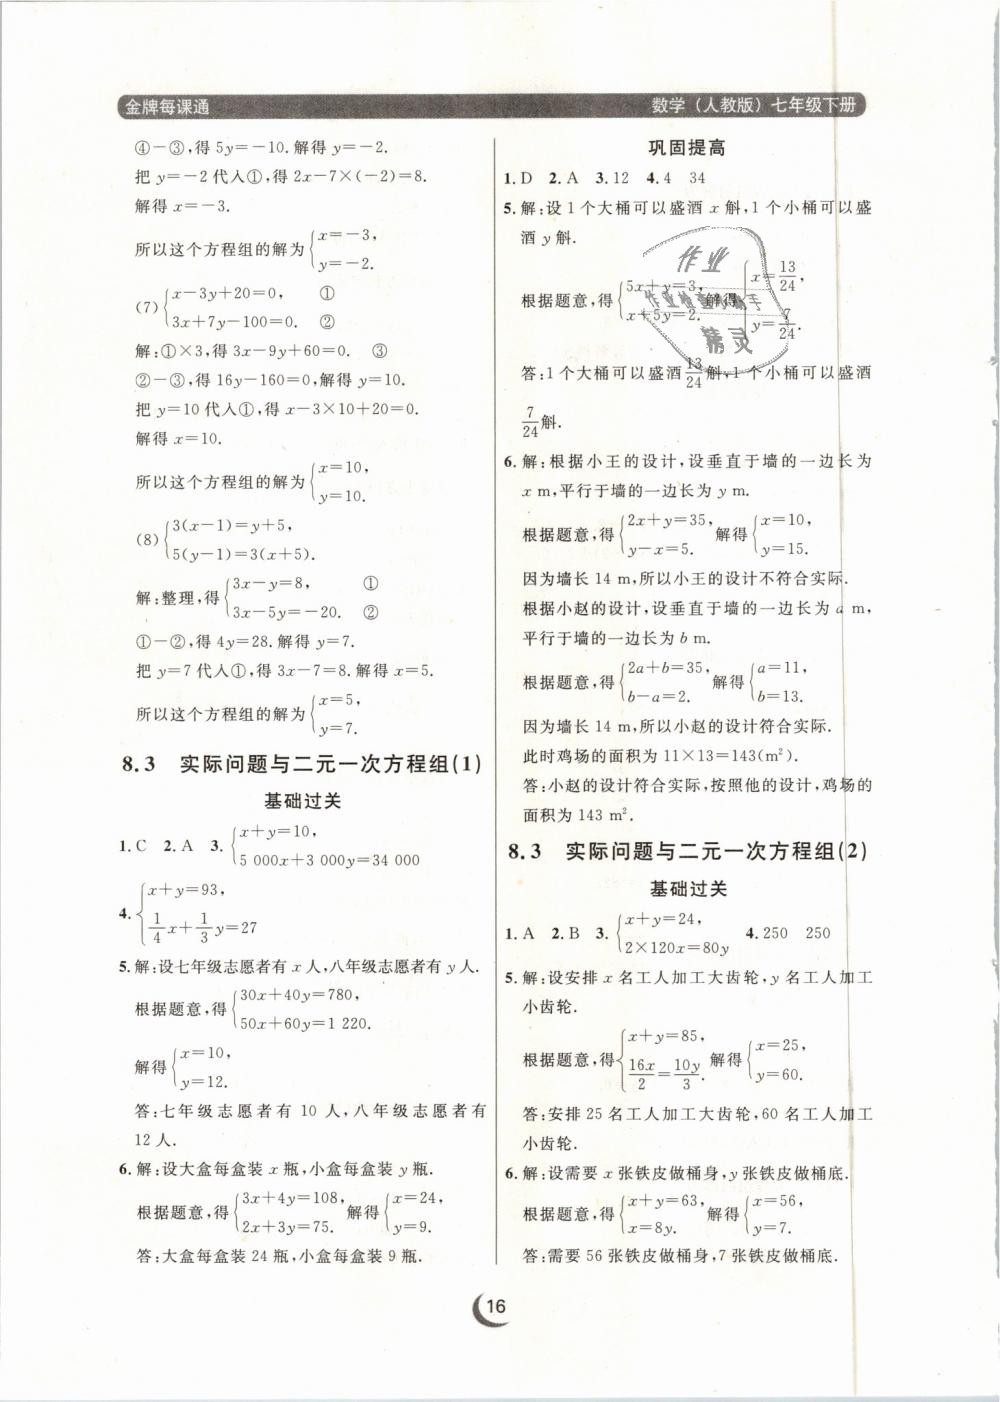 金牌每课通
数学（人教版）七年级下册
④－③,得 5y=－10.解得 y=－2.
把 y=－2 代人①,得 2x－7×(－2)=8.
解得 x=－3.
所以这个方程组的解为{x=－3,
y=－2.
(7){x－3y+20=0, ①
3x+7y－100=0. ②
解:①×3,得 3x－9y+60=0. ③
②－③,得 16y－160=0,解得 y=10.
把 y=10 代人①,得 x－3×10+20=0.
解得 x=10.
所以这个方程组的解为{x=10,
y=10.
(8){3(x－1)=y+5,
5(y－1)=3(x+5).
解:整理,得{3x－y=8, ①
3x－5y=－20. ②
①－②,得 4y=28.解得 y=7.
把 y=7 代人①,得 3x－7=8.解得 x=5.
所以这个方程组的解为{x=5,
y=7.
8.3 实际问题与二元一次方程组(1)
基础过关
1. C 2. A 3. {x+y=10,
5 000x+3 000y=34 000
4. {x+y=93,
1/4 x+1/3 y=27
5. 解:设七年级志愿者有 x 人,八年级志愿者有 y 人.
根据题意,得{30x+40y=780,
50x+60y=1 220.
解得{x=10,
y=12.
答:七年级志愿者有 10 人,八年级志愿者有
12 人.
6. 解:设大盒每盒装 x 瓶,小盒每盒装 y 瓶.
根据题意,得{3x+4y=108, 解得{x=24,
2x+3y=75. y=9.
答:大盒每盒装 24 瓶,小盒每盒装 9 瓶.
巩固提高
1. D 2. A 3. 12 4. 4 34
5. 解:设 1 个大桶可以盛酒 x 斛,1 个小桶可以盛
酒 y 斛.
根据题意,得{5x+y=3, 解得{x=13/24,
x+5y=2. y=7/24.
作业
作业检查小助手
精灵
答:1 个大桶可以盛酒 13/24 斛,1 个小桶可以盛酒
7/24 斛.
6. 解:根据小王的设计,设垂直于墙的一边长为
x m,平行于墙的一边长为 y m.
根据题意,得{2x+y=35, 解得{x=10,
y－x=5. y=15.
因为墙长 14 m,所以小王的设计不符合实际.
根据小赵的设计,设垂直于墙的一边长为 a m,
平行于墙的一边长为 b m.
根据题意,得{2a+b=35, 解得{a=11,
b－a=2. b=13.
因为墙长 14 m,所以小赵的设计符合实际.
此时鸡场的面积为 11×13=143(m²).
答:小赵的设计符合实际,按照他的设计,鸡场的
面积为 143 m².
8.3 实际问题与二元一次方程组(2)
基础过关
1. A 2. B 3. {x+y=24, 4. 250 250
2×120x=80y
5. 解:设安排 x 名工人加工大齿轮,y 名工人加工
小齿轮.
根据题意,得{x+y=85, 解得{x=25,
16x/2=10y/3. y=60.
答:安排 25 名工人加工大齿轮,60 名工人加工
小齿轮.
6. 解:设需要 x 张铁皮做桶身,y 张铁皮做桶底.
根据题意,得{x+y=63, 解得{x=56,
x=8y. y=7.
答:需要 56 张铁皮做桶身,7 张铁皮做桶底.
16